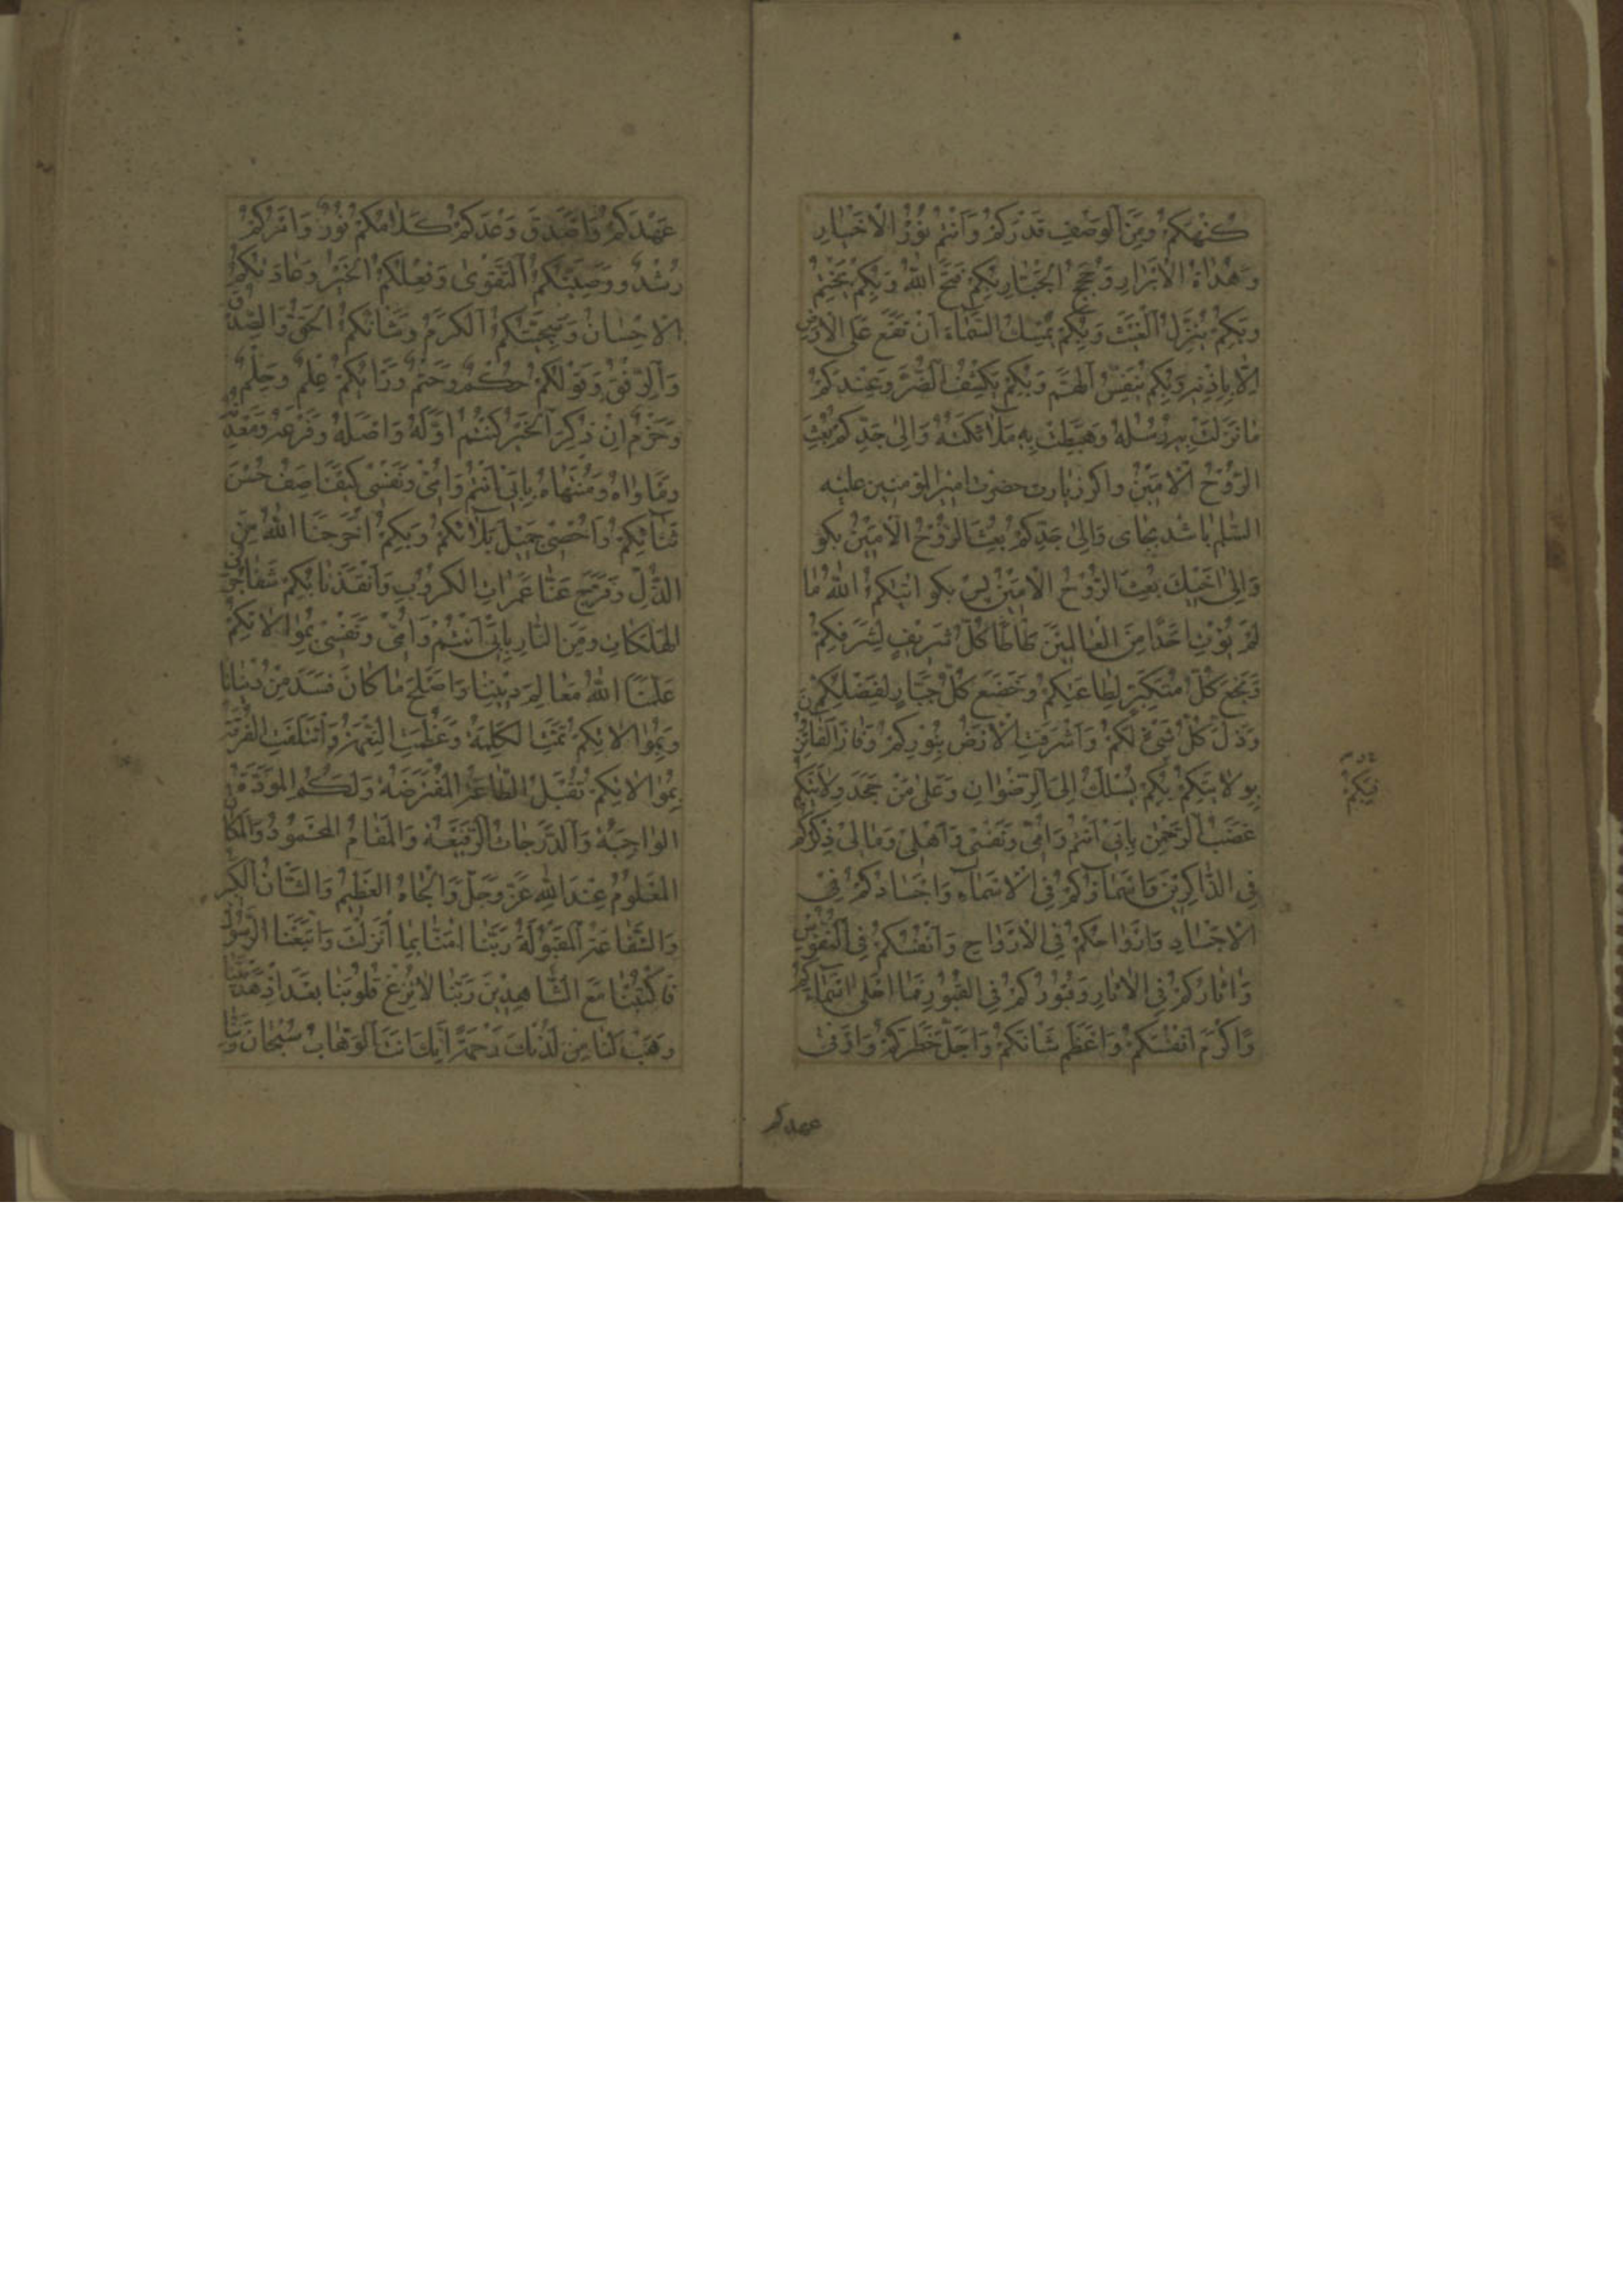 كُنْهَكُمْ وَمِنَ الْوَصْفِ قَدْرَكُمْ وَاَنْتُمْ نُوْرُ الْاَخْيٰارِ
وَهُدٰاةُ الْاَبْرٰارِ وَحُجَجُ الْجَبّٰارِ بِكُمْ فَتَحَ اللّٰهُ وَبِكُمْ يَخْتِمُ
وَبِكُمْ يُنَزِّلُ الْغَيْثَ وَبِكُمْ يُمْسِكُ السَّمٰاءَ اَنْ تَقَعَ عَلَى الْاَرْضِ
اِلّٰا بِاِذْنِهِ وَبِكُمْ يُنَفِّسُ الْهَمَّ وَبِكُمْ يَكْشِفُ الضُّرَّ وَعِنْدَكُمْ
مٰا نَزَلَتْ بِهِ رُسُلُهُ وَهَبَطَتْ بِهِ مَلٰائِكَتُهُ وَاِلٰى جَدِّكُمْ بُعِثَ
الرُّوْحُ الْاَمِيْنُ واكر زيارت حضرت امير المؤمنين عليه
السّلم باشد بجاى وَاِلٰى جَدِّكُمْ بُعِثَ الرُّوْحُ الْاَمِيْنُ بكو
وَاِلٰى اَخِيْكَ بُعِثَ الرُّوْحُ الْاَمِيْنُ پس بكو اٰتٰيكُمُ اللّٰهُ مٰا
لَمْ يُؤْتِ اَحَدًا مِنَ الْعٰالَمِيْنَ طَأْطَأَ كُلُّ شَرِيْفٍ لِشَرَفِكُمْ
وَبَخَعَ كُلُّ مُتَكَبِّرٍ لِطٰاعَتِكُمْ وَخَضَعَ كُلُّ جَبّٰارٍ لِفَضْلِكُمْ
وَذَلَّ كُلُّ شَىْءٍ لَكُمْ وَاَشْرَقَتِ الْاَرْضُ بِنُوْرِكُمْ وَفٰازَ الْفٰائِزُوْنَ
بِوِلٰايَتِكُمْ بِكُمْ يُسْلَكُ اِلَى الرِّضْوٰانِ وَعَلٰى مَنْ جَحَدَ وِلٰايَتَكُمْ
غَضَبُ الرَّحْمٰنِ بِاَبِىْ اَنْتُمْ وَاُمِّىْ وَنَفْسِىْ وَاَهْلِىْ وَمٰالِىْ ذِكْرُكُمْ
فِى الذّٰاكِرِيْنَ وَاَسْمٰاؤُكُمْ فِى الْاَسْمٰاءِ وَاَجْسٰادُكُمْ فِىْ
الْاَجْسٰادِ وَاَرْوٰاحُكُمْ فِى الْاَرْوٰاحِ وَاَنْفُسُكُمْ فِى النُّفُوْسِ
وَاٰثٰارُكُمْ فِى الْاٰثٰارِ وَقُبُوْرُكُمْ فِى الْقُبُوْرِ فَمٰا اَحْلٰى اَسْمٰاءَكُمْ
وَاَكْرَمَ اَنْفُسَكُمْ وَاَعْظَمَ شَانَكُمْ وَاَجَلَّ خَطَرَكُمْ وَاَوْفىٰ
عهدكم
عَهْدَكُمْ وَاَصْدَقَ وَعْدَكُمْ كَلٰامُكُمْ نُوْرٌ وَاَمْرُكُمْ
رُشْدٌ وَوَصِيَّتُكُمُ التَّقْوٰى وَفِعْلُكُمُ الْخَيْرُ وَعٰادَتُكُمُ
الْاِحْسٰانُ وَسَجِيَّتُكُمُ الْكَرَمُ وَشَانُكُمُ الْحَقُّ وَالصِّدْقُ
وَالرِّفْقُ وَقَوْلُكُمْ حُكْمٌ وَحَتْمٌ وَرَايُكُمْ عِلْمٌ وَحِلْمٌ
وَحَزْمٌ اِنْ ذُكِرَ الْخَيْرُ كُنْتُمْ اَوَّلَهُ وَاَصْلَهُ وَفَرْعَهُ وَمَعْدِنَهُ
وَمَاْوٰاهُ وَمُنْتَهٰاهُ بِاَبِىْ اَنْتُمْ وَاُمِّىْ وَنَفْسِىْ كَيْفَ اَصِفُ حُسْنَ
ثَنٰائِكُمْ وَاُحْصِىْ جَمِيْلَ بَلٰائِكُمْ وَبِكُمْ اَخْرَجَنَا اللّٰهُ مِنَ
الذُّلِّ وَفَرَّجَ عَنّٰا غَمَرٰاتِ الْكُرُوْبِ وَاَنْقَذَنٰا بِكُمْ مِنْ شَفٰا جُرُفِ
الْهَلَكٰاتِ وَمِنَ النّٰارِ بِاَبِىْ اَنْتُمْ وَاُمِّىْ وَنَفْسِىْ بِمُوٰالٰاتِكُمْ
عَلَّمَنَا اللّٰهُ مَعٰالِمَ دِيْنِنٰا وَاَصْلَحَ مٰا كٰانَ فَسَدَ مِنْ دُنْيٰانٰا
وَبِمُوٰالٰاتِكُمْ تَمَّتِ الْكَلِمَةُ وَعَظُمَتِ النِّعْمَةُ وَائْتَلَفَتِ الْفُرْقَةُ
بِمُوٰالٰاتِكُمْ تُقْبَلُ الطّٰاعَةُ الْمُفْتَرَضَةُ وَلَكُمُ الْمَوَدَّةُ
الْوٰاجِبَةُ وَالدَّرَجٰاتُ الرَّفِيْعَةُ وَالْمَقٰامُ الْمَحْمُوْدُ وَالْمَكٰانُ
الْمَعْلُوْمُ عِنْدَ اللّٰهِ عَزَّ وَجَلَّ وَالْجٰاهُ الْعَظِيْمُ وَالشَّانُ الْكَبِيْرُ
وَالشَّفٰاعَةُ الْمَقْبُوْلَةُ رَبَّنٰا اٰمَنّٰا بِمٰا اَنْزَلْتَ وَاتَّبَعْنَا الرَّسُوْلَ
فَاكْتُبْنٰا مَعَ الشّٰاهِدِيْنَ رَبَّنٰا لٰا تُزِغْ قُلُوْبَنٰا بَعْدَ اِذْ هَدَيْتَنٰا
وَهَبْ لَنٰا مِنْ لَدُنْكَ رَحْمَةً اِنَّكَ اَنْتَ الْوَهّٰابُ سُبْحٰانَ رَبِّنٰا